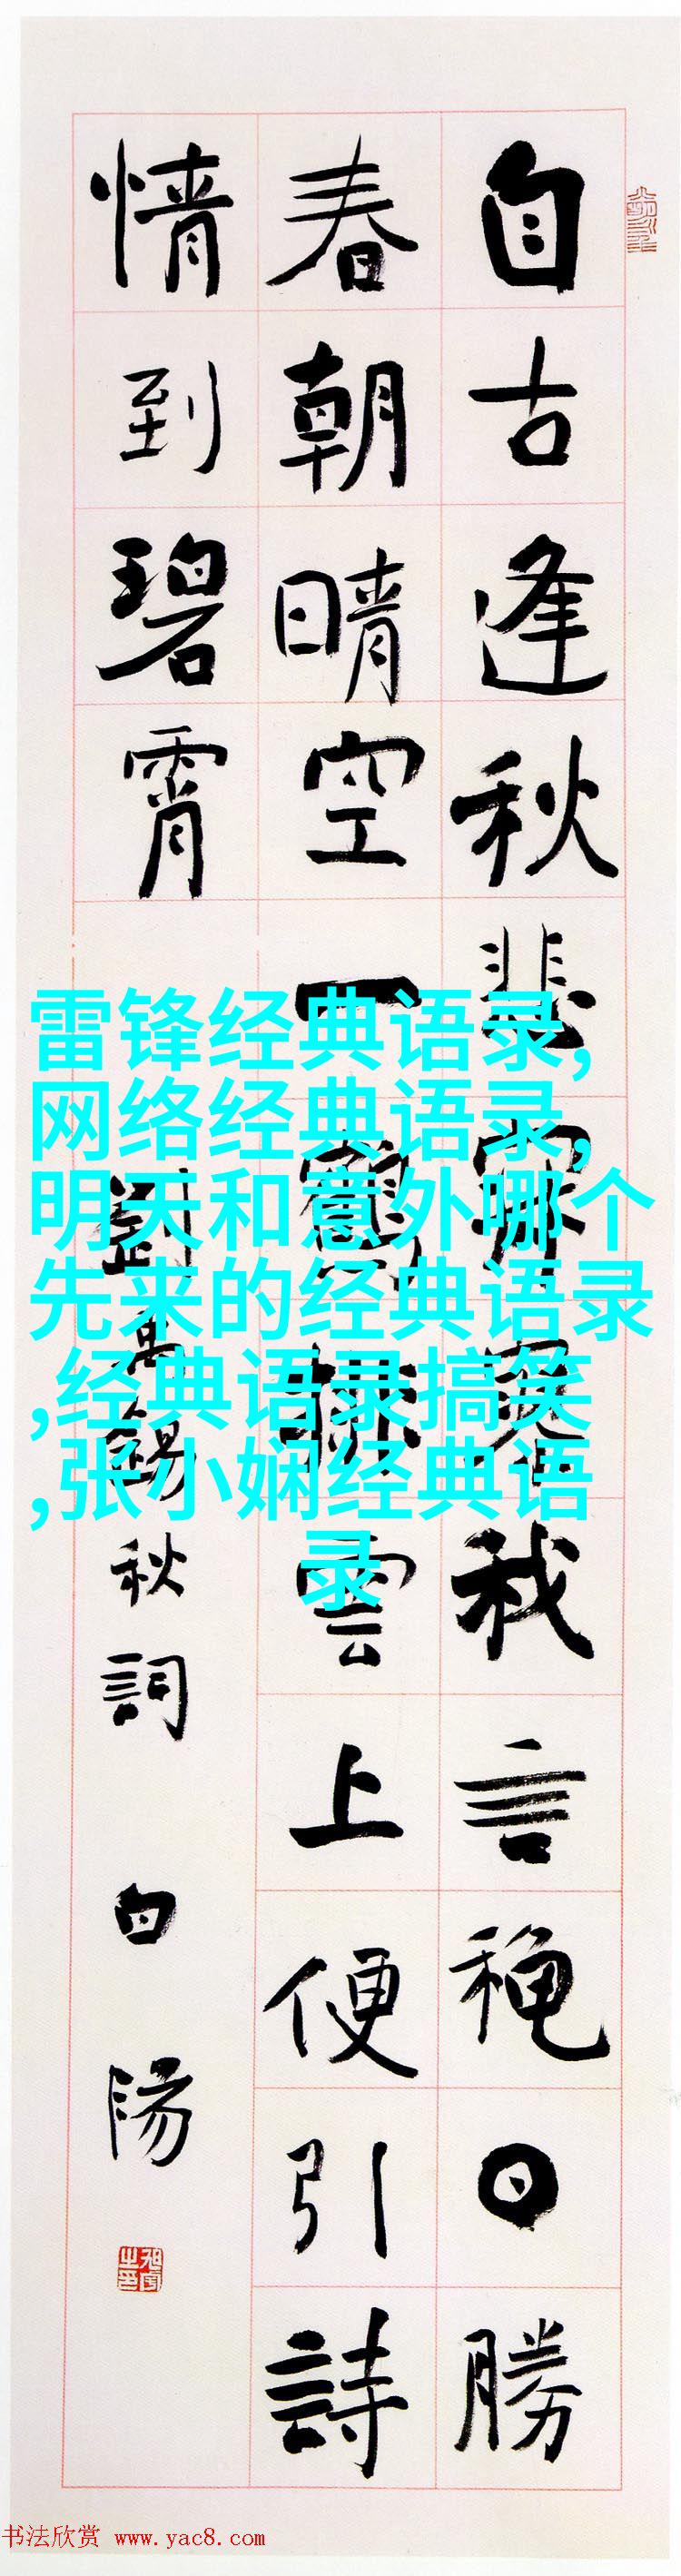 自古逢秋悲寂寥我言穐日勝
春朝晴空一鶴排雲上便引詩
情到碧霄
劉禹錫秋詞 白陽
雷锋经典语录,
网络经典语录,
明天和意外哪个
先来的经典语录
,经典语录搞笑
,张小娴经典语
录
书法欣赏 www.yac8.com